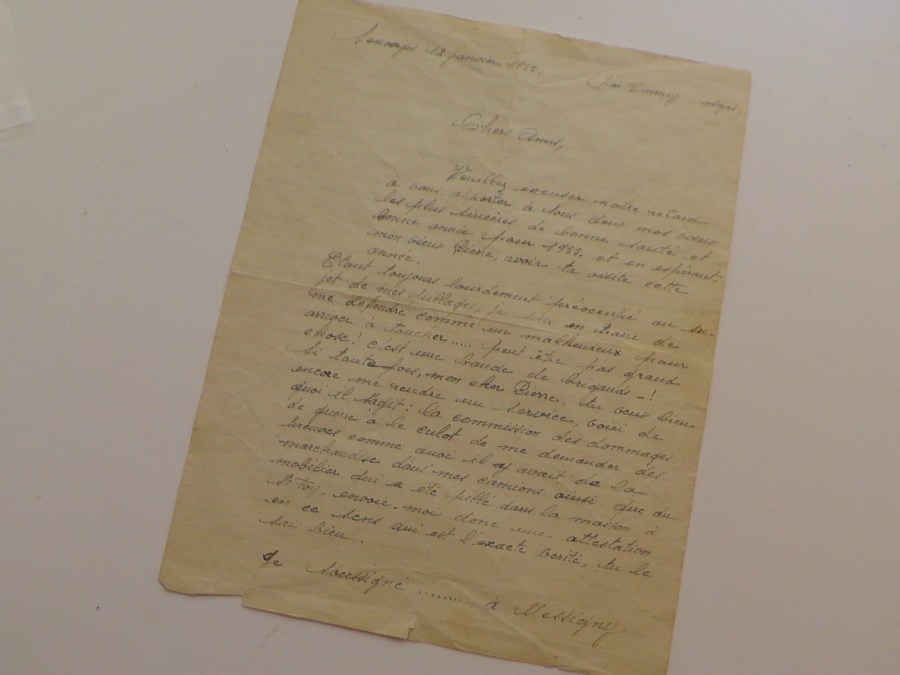 12 janvier 1952.
par
Chers Amis,
Veuillez excuser notre retard
à vous apporter à tous deux mes vœux
les plus sincères de bonne santé et
bonne année pour 1952. et en espérant,
mon vieux Pierre, avoir ta visite cette
année.
Étant toujours lourdement préoccupé au su-
jet de mes pillages, je suis en train de
me défendre comme un malheureux pour
arriver à toucher..... peut être pas grand
chose! c'est une bande de brigands-!
Si toute fois, mon cher Pierre, tu veux bien
encore me rendre un service, voici de
quoi il s'agit: la commission des dommages
de guerre à le culot de me demander des
preuves comme quoi il y avait de la
marchandise dans mes camions ainsi que du
mobilier qui a été pillé dans la maison à
envoie-moi donc une attestation
en ce sens qui est l'exacte vérité, tu le
sais bien.
Je soussigné ........ à Messigny,